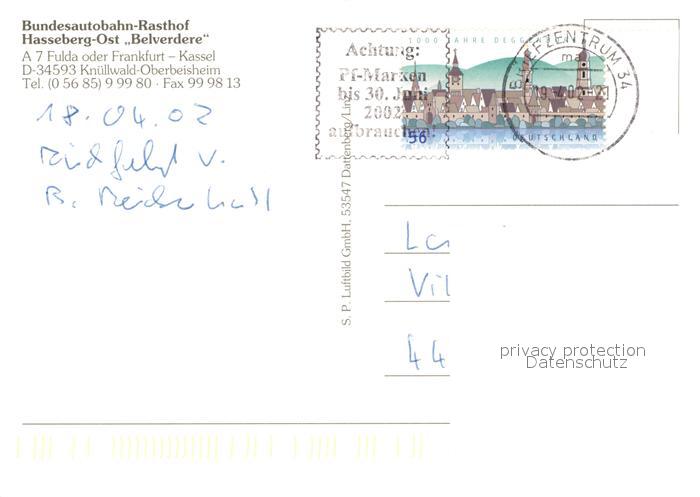 Bundesautobahn-Rasthof
Hasseberg-Ost „Belverdere“
A 7 Fulda oder Frankfurt – Kassel
D-34593 Knüllwald-Oberbeisheim
Tel. (0 56 85) 9 99 80 · Fax 99 98 13
18.04.02
Rückfahrt v.
B. Reichenhall
S. P. Luftbild GmbH, 53547 Dattenberg/Linz
Achtung:
Pf-Marken
bis 30. Juni
2002
aufbrauchen!
1000 JAHRE DEGGEN
56
DEUTSCHLAND
BRIEFZENTRUM 34
ma
La
Vil
44
privacy protection
Datenschutz